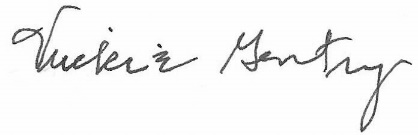 Vickie Gentry